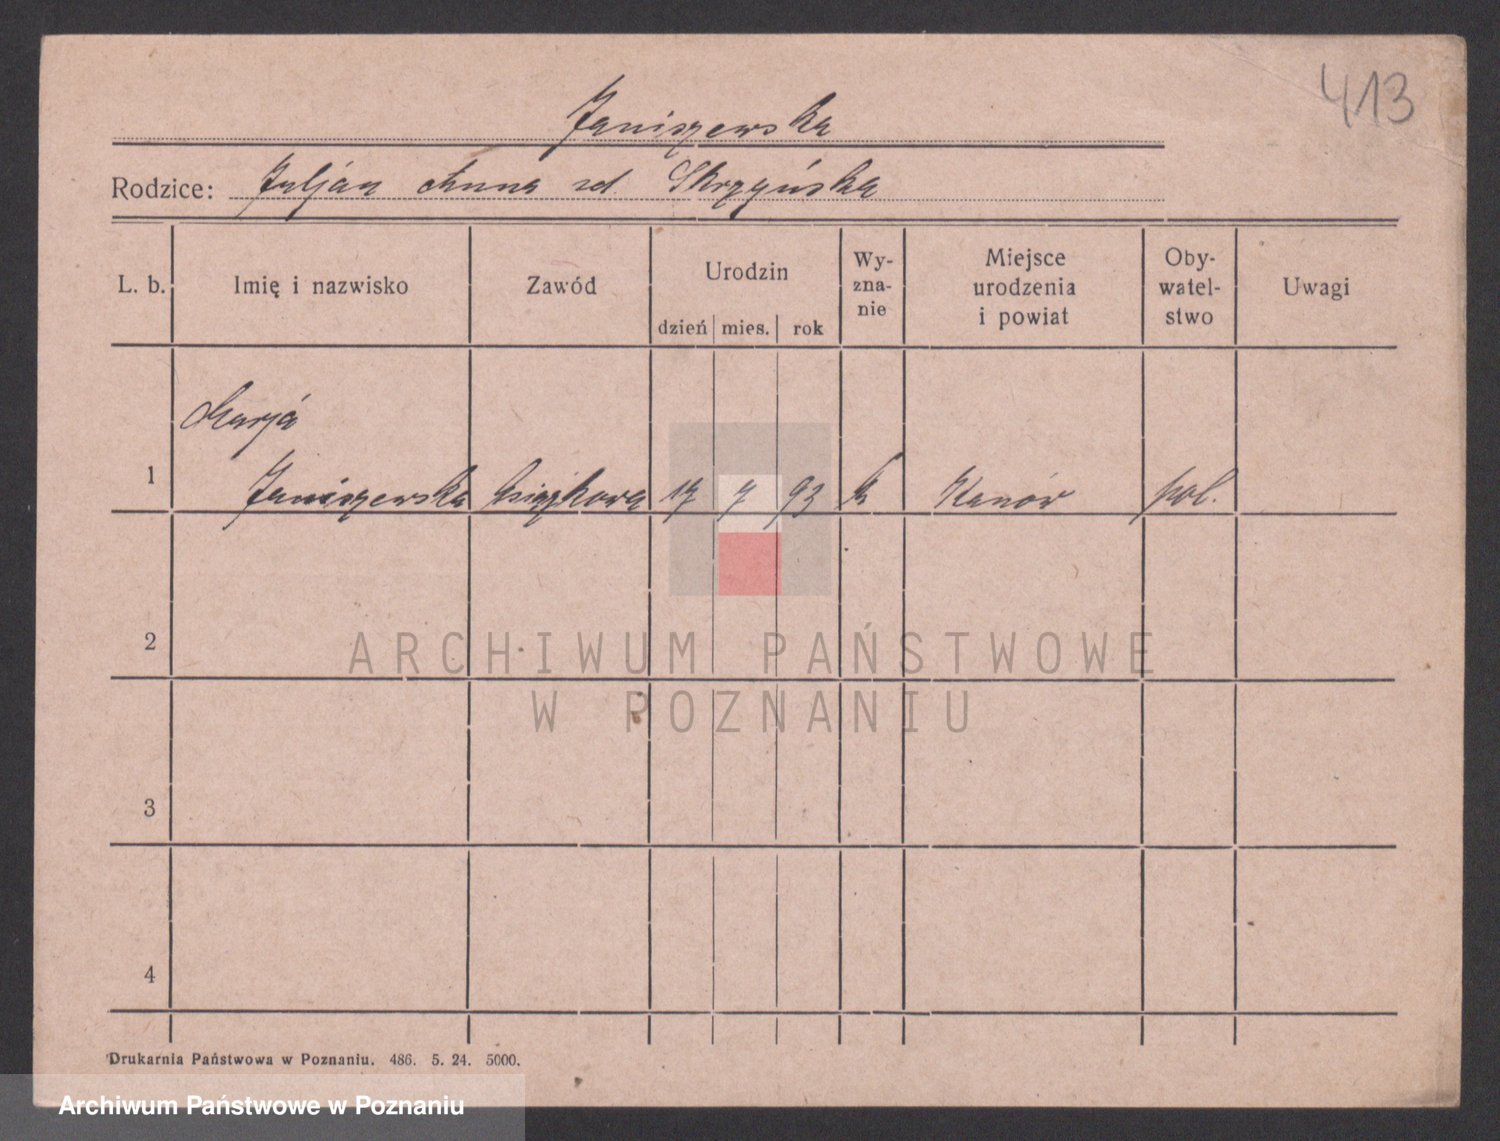 413
Janiszewska
Rodzice: Juljan Anna zd Skrzyńska
L. b.
Imię i nazwisko
Zawód
Urodzin
dzień mies. rok
Wy-
zna-
nie
Miejsce
urodzenia
i powiat
Oby-
watel-
stwo
Uwagi
Marja
1 Janiszewska książkowa 17 7 93 k pol.
2
ARCHIWUM PAŃSTWOWE
W POZNANIU
3
4
Drukarnia Państwowa w Poznaniu. 486. 5. 24. 5000.
Archiwum Państwowe w Poznaniu